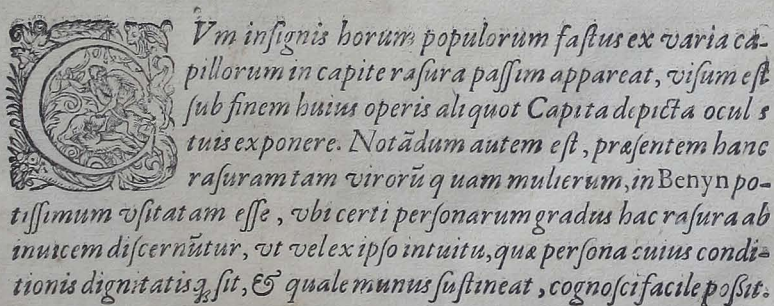 CVm insignis horum populorum fastus ex varia ca-
pillorum in capite rasura passim appareat, visum est
sub finem huius operis aliquot Capita depicta ocul s
tuis exponere. Notãdum autem est, præsentem hanc
rasuram tam virorũ quam mulierum, in Benyn po-
tissimum vsitatam esse, vbi certi personarum gradus hac rasura ab
inuicem discernũtur, vt vel ex ipso intuitu, quæ persona cuius condi-
tionis dignitatisq; sit, & quale munus sustineat, cognosci facile possit.